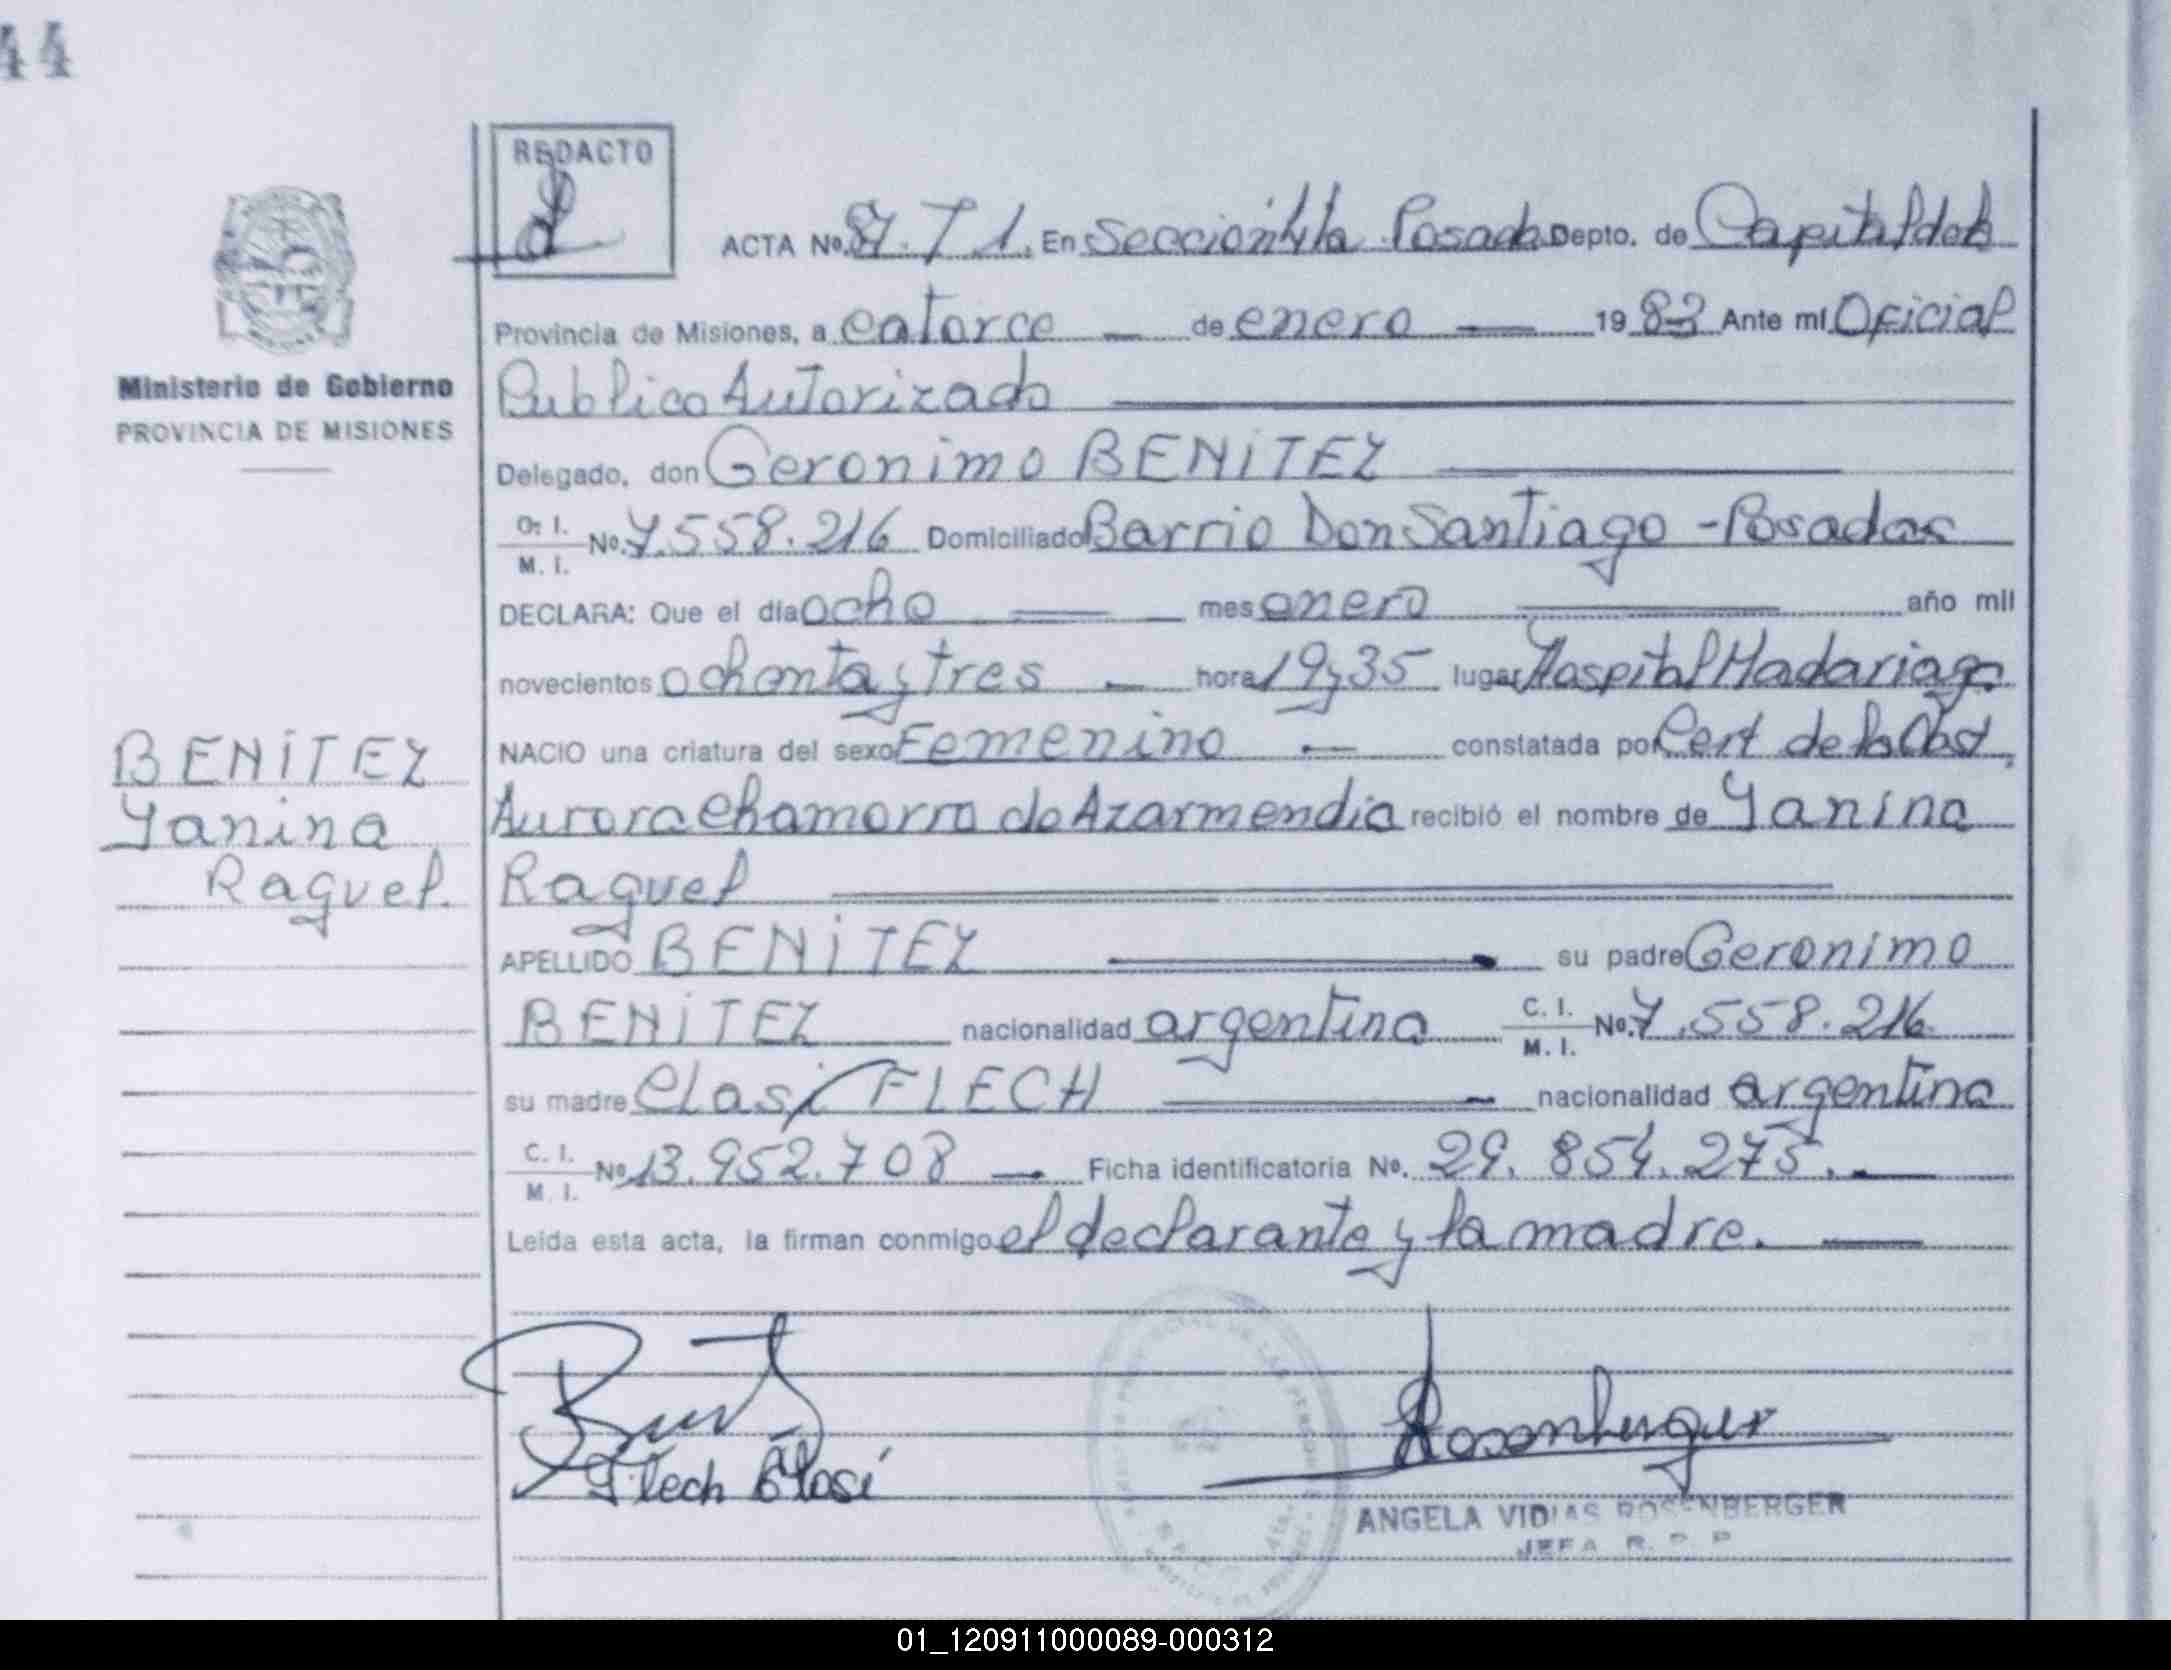 44
REDACTO
ACTA No. 87. T 1. En Sección 4ta Posadas Depto. de Capital de la
Provincia de Misiones, a catorce de enero 1983 Ante mí Oficial
Publico Autorizado
Ministerio de Gobierno
PROVINCIA DE MISIONES
Delegado, don Geronimo BENITEZ
C. I. M. I. No. 7.558.216 Domiciliado Barrio Don Santiago - Posadas
DECLARA: Que el día ocho mes enero año mil
novecientos ochenta y tres hora 19,35 lugar Hospital Madariaga
NACIO una criatura del sexo Femenino constatada por Cert de la Obst,
Aurora Chamorro de Azarmendia recibió el nombre de Yanina
Raquel
BENITEZ
Yanina
Raquel.
APELLIDO BENITEZ su padre Geronimo
BENITEZ nacionalidad argentina C. I. M. I. No. 7.558.216
su madre Elasi FLECH nacionalidad argentina
C. I. M. I. No. 13.952.708 Ficha identificatoria No. 29.854.275.
Leída esta acta, la firman conmigo el declarante y la madre.
Flech Elasi
Rosenberger
ANGELA VIDIAS ROSENBERGER
JEFA R. P. P
01_120911000089-000312